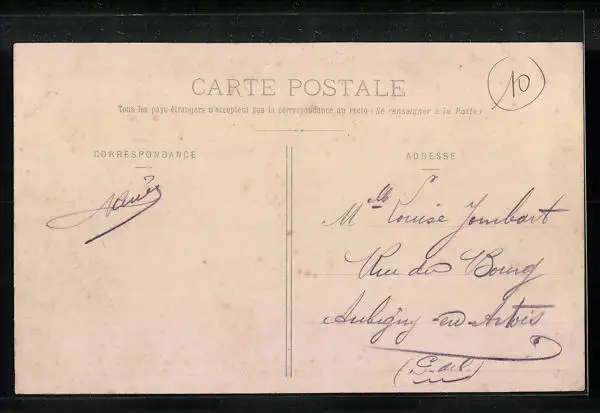 10
CARTE POSTALE
Tous les pays étrangers n'acceptent pas la correspondance au recto (Se renseigner à la Poste)
CORRESPONDANCE
ADRESSE
Mlle Louise Jombart
Rue du Bourg
Aubigny-en-Artois
(P. de C.)